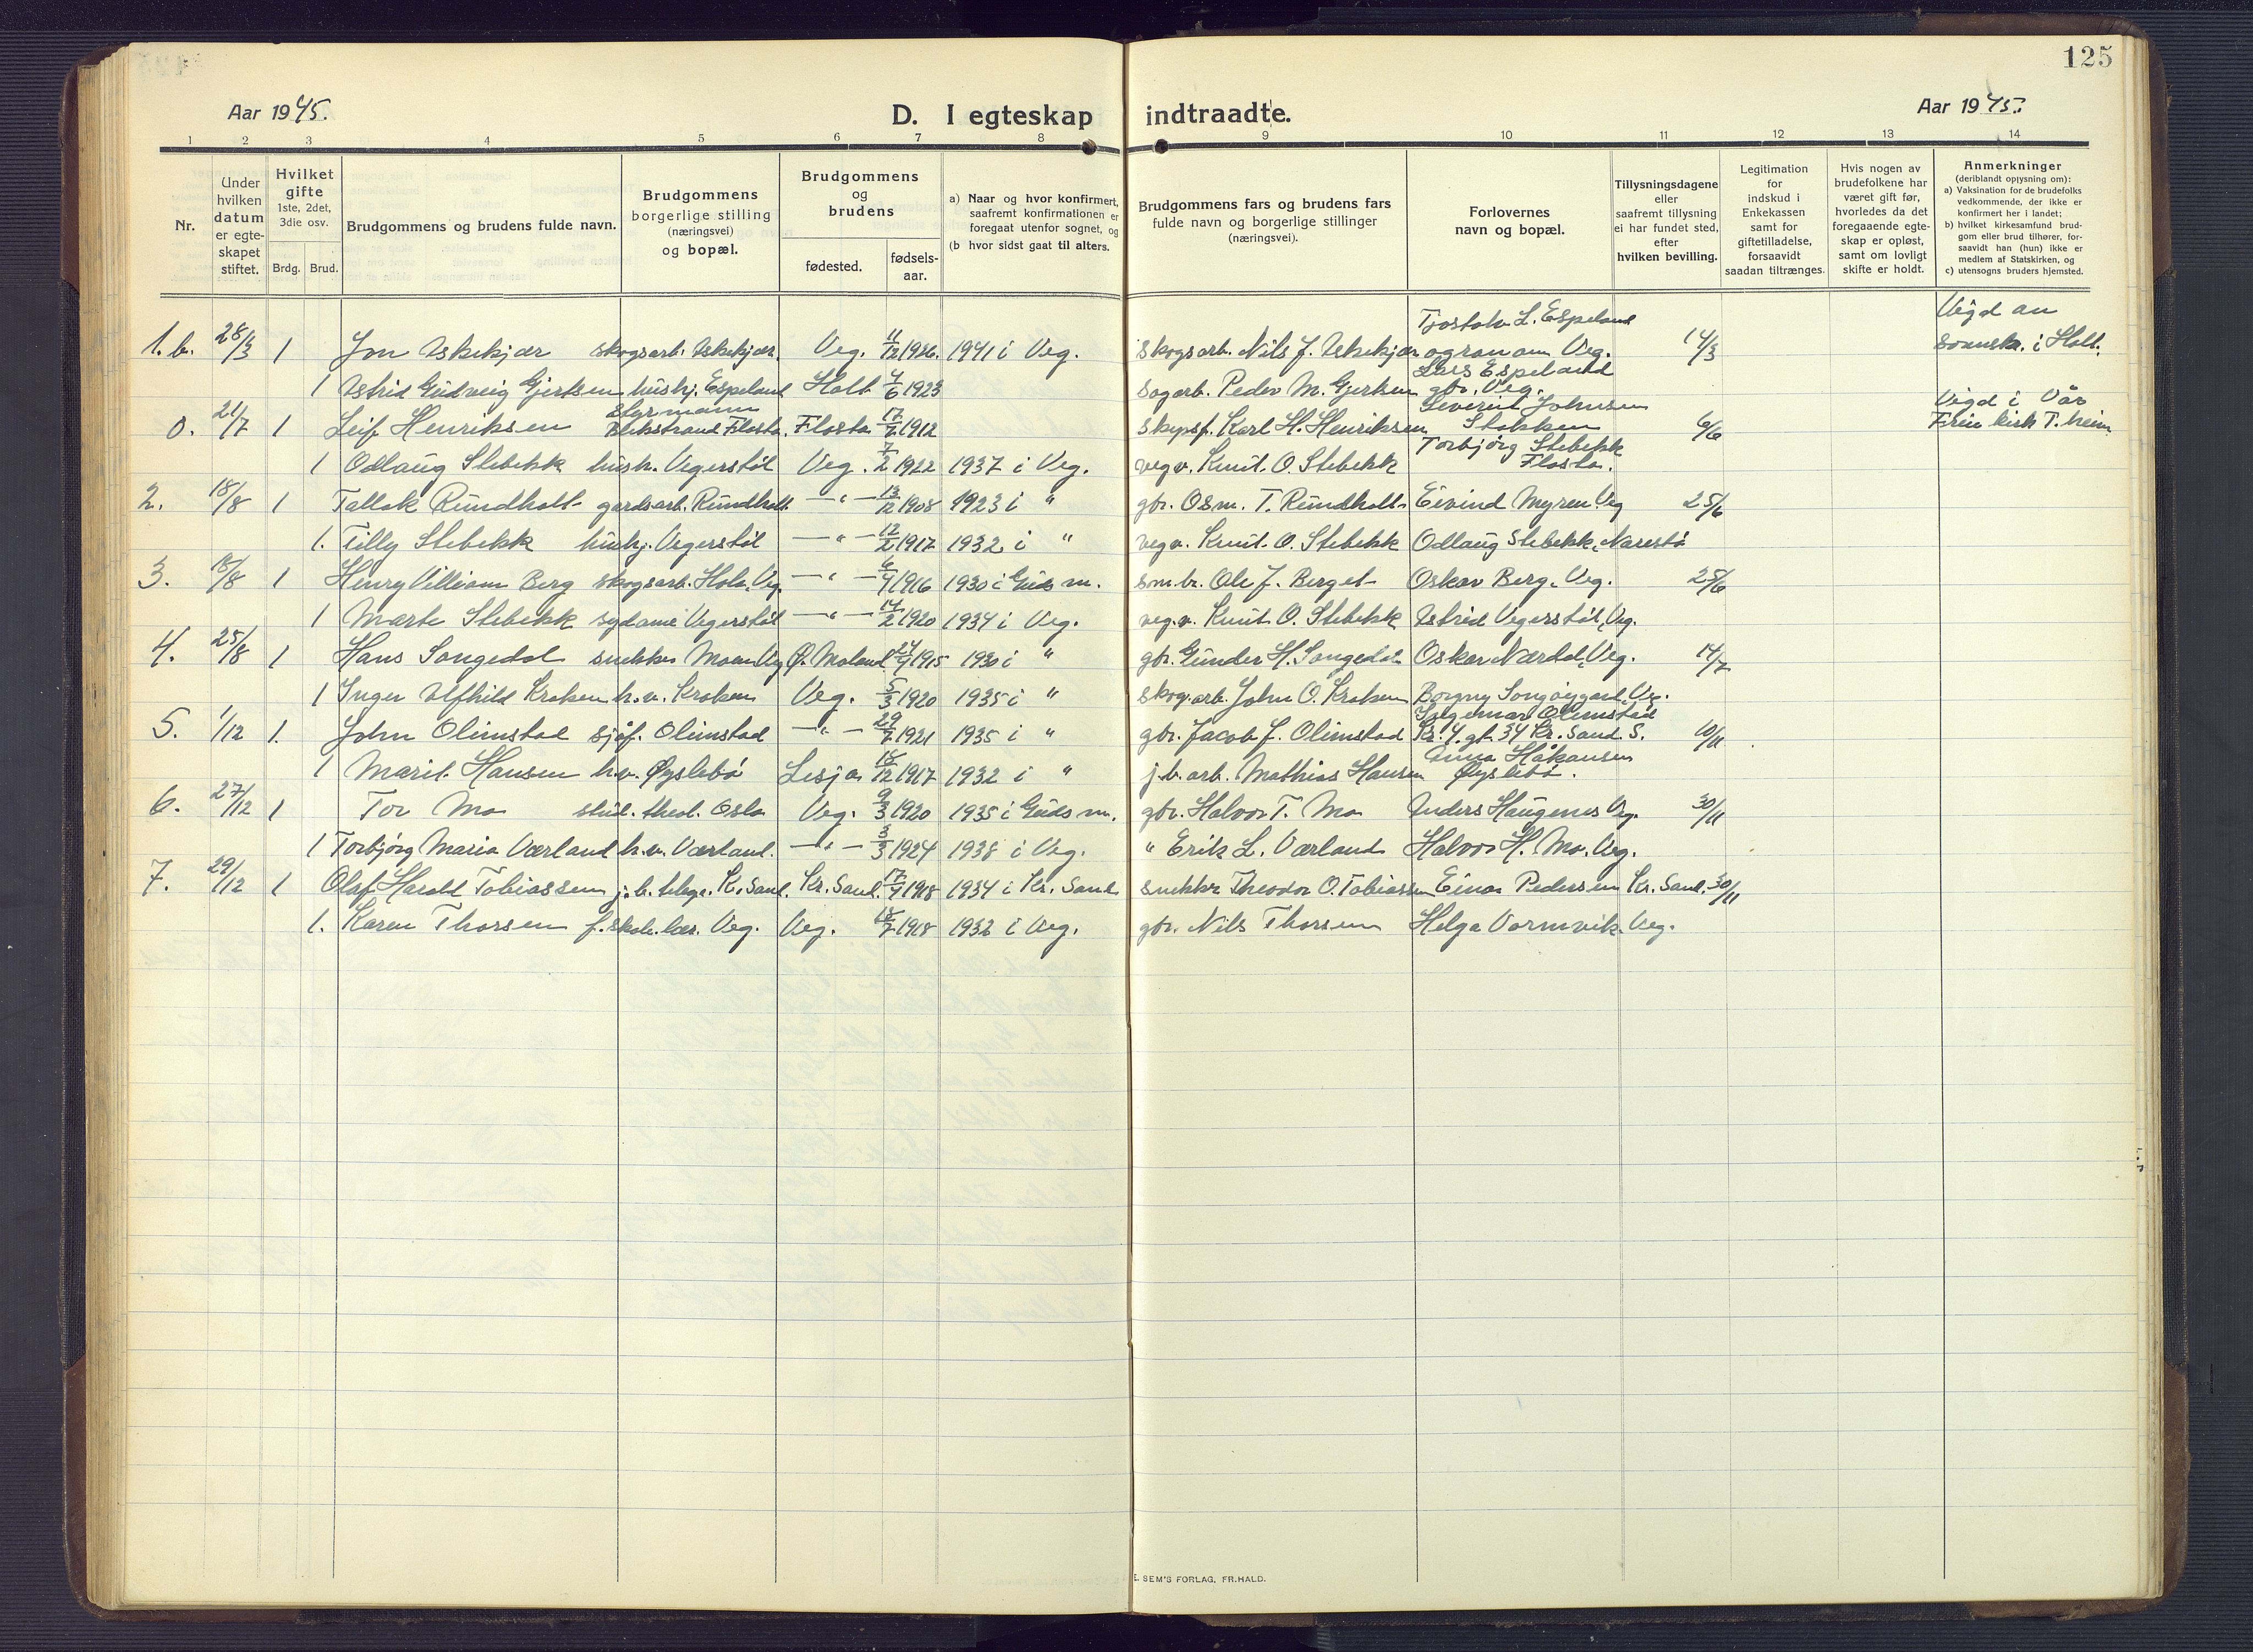 125
Aar 1945. D. I egteskap indtraadte. Aar 1945.
1 2 3 4 5 6 7 8 9 10 11 12 13 14
Nr.
Under hvilken datum er egte-skapet stiftet.
Hvilket gifte 1ste, 2det, 3die osv. Brdg. Brud.
Brudgommens og brudens fulde navn.
Brudgommens borgerlige stilling (næringsvei) og bopæl.
Brudgommens og brudens fødested. fødsels-aar.
a) Naar og hvor konfirmert, saafremt konfirmationen er foregaat utenfor sognet, og
(b hvor sidst gaat til alters.
Brudgommens fars og brudens fars fulde navn og borgerlige stillinger (næringsvei).
Forlovernes navn og bopæl.
Tillysningsdagene eller saafremt tillysning ei har fundet sted, efter hvilken bevilling.
Legitimation for indskud i Enkekassen samt for giftetilladelse, forsaavidt saadan tiltrænges.
Hvis nogen av brudefolkene har været gift før, hvorledes da det foregaaende egte-skap er opløst, samt om lovligt skifte er holdt.
Anmerkninger (deriblandt opjysning om):
a) Vaksination for de brudefolks vedkommende, der ikke er konfirmert her i landet;
b) hvilket kirkesamfund brud-gom eller brud tilhører, for-saavidt han (hun) ikke er medlem af Statskirken, og
c) utensogns bruders hjemsted.
Tjostolv L. Espeland Vigd av
1. b. 28/3 1 Jon Askekjær skogsarb. Askekjær. Veg. 11/12 1926. 1941 i Veg. skogsarb. Nils J. Askekjær Veg. 14/3 i Holt.
Lars Espeland
1 Astrid Gudveig Gjertsen hushj. Espeland Holt 4/6 1923 sagarb. Peder M. Gjertsen gbr. Veg.
styrmann Severin Johnsen Vigd i Vår
0. 21/7 1 Leif Henriksen Flosta. Flosta 17/2 1912 skipsf. Karl H. Henriksen Stokken 6/6 Frie kirk T. heim
Torbjørg Stebekk
1 Odlaug Stebekk hush. Vegerstøl Veg. 7/2 1922 1937 i Veg. vegv. Knut O. Stebekk Flosta.
2. 18/8 1 Tallak Rundholt gardsarb. Rundholt — " — 13/12 1908 1923 i " gbr. Osm. T. Rundholt Eivind Myren Veg 25/6
1. Tilly Stebekk hushj. Vegerstøl — " — 12/2 1917 1932 i " vegv. Knut O. Stebekk Odlaug Stebekk, Narestø
3. 18/8 1 Henry Villiam Berg skogsarb. Hola, Veg. — " — 6/4 1916 1930 i Guds m. sm.br. Ole J. Berget Oskar Berg. Veg. 25/6
1 Marte Stebekk sydame Vegerstøl — " — 14/2 1920 1934 i Veg. veg.v. Knut O. Stebekk Astrid Vegerstøl, Veg.
4. 25/8 1 Hans Songedal snekker Moen Veg Ø. Moland 24/9 1915 1930 i " gbr. Gunder H. Songedal Oskar Nærdal, Veg. 14/7
1 Inger Alfhild Kroken h.v. Kroken Veg. 5/3 1920 1935 i " skog.arb. John O. Kroken Borgny Songøygard, Veg.
Salgemar Olimstad
5. 1/12 1. John Olimstad sjøf. Olimstad — " — 29/7 1921 1935 i " gbr. Jacob J. Olimstad Kr. 4. gt. 34 Kr. Sand S. 10/11
Anna Håkansen
1 Marit Hansen h.v. Øyslebø Lesja 18/12 1917 1932 i " j.b.arb. Mathias Hansen Øyslebø.
6. 27/12 1 Tor Mo stud. theol. Oslo Veg. 9/3 1920 1935 i Guds m. gbr. Halvor T. Mo Anders Haugenes Veg. 30/11
1 Torbjørg Maria Værland h.v. Værland. — " — 3/3 1924 1938 i Veg. " Erik L. Værland Halvor H. Mo. Veg.
7. 29/12 1 Olaf Harald Tobiassen j.b. telegr. K. Sand. Kr. Sand. 17/9 1918 1934 i Kr. Sand snekker Theodor O. Tobiassen Einar Pedersen Kr. Sand. 30/11
1. Karen Thorsen f.skole.lær. Veg. Veg. 18/7 1918 1932 i Veg. gbr. Nils Thorsen Helga Vormvik. Veg.
E. SEM'S FORLAG, FR.HALD.